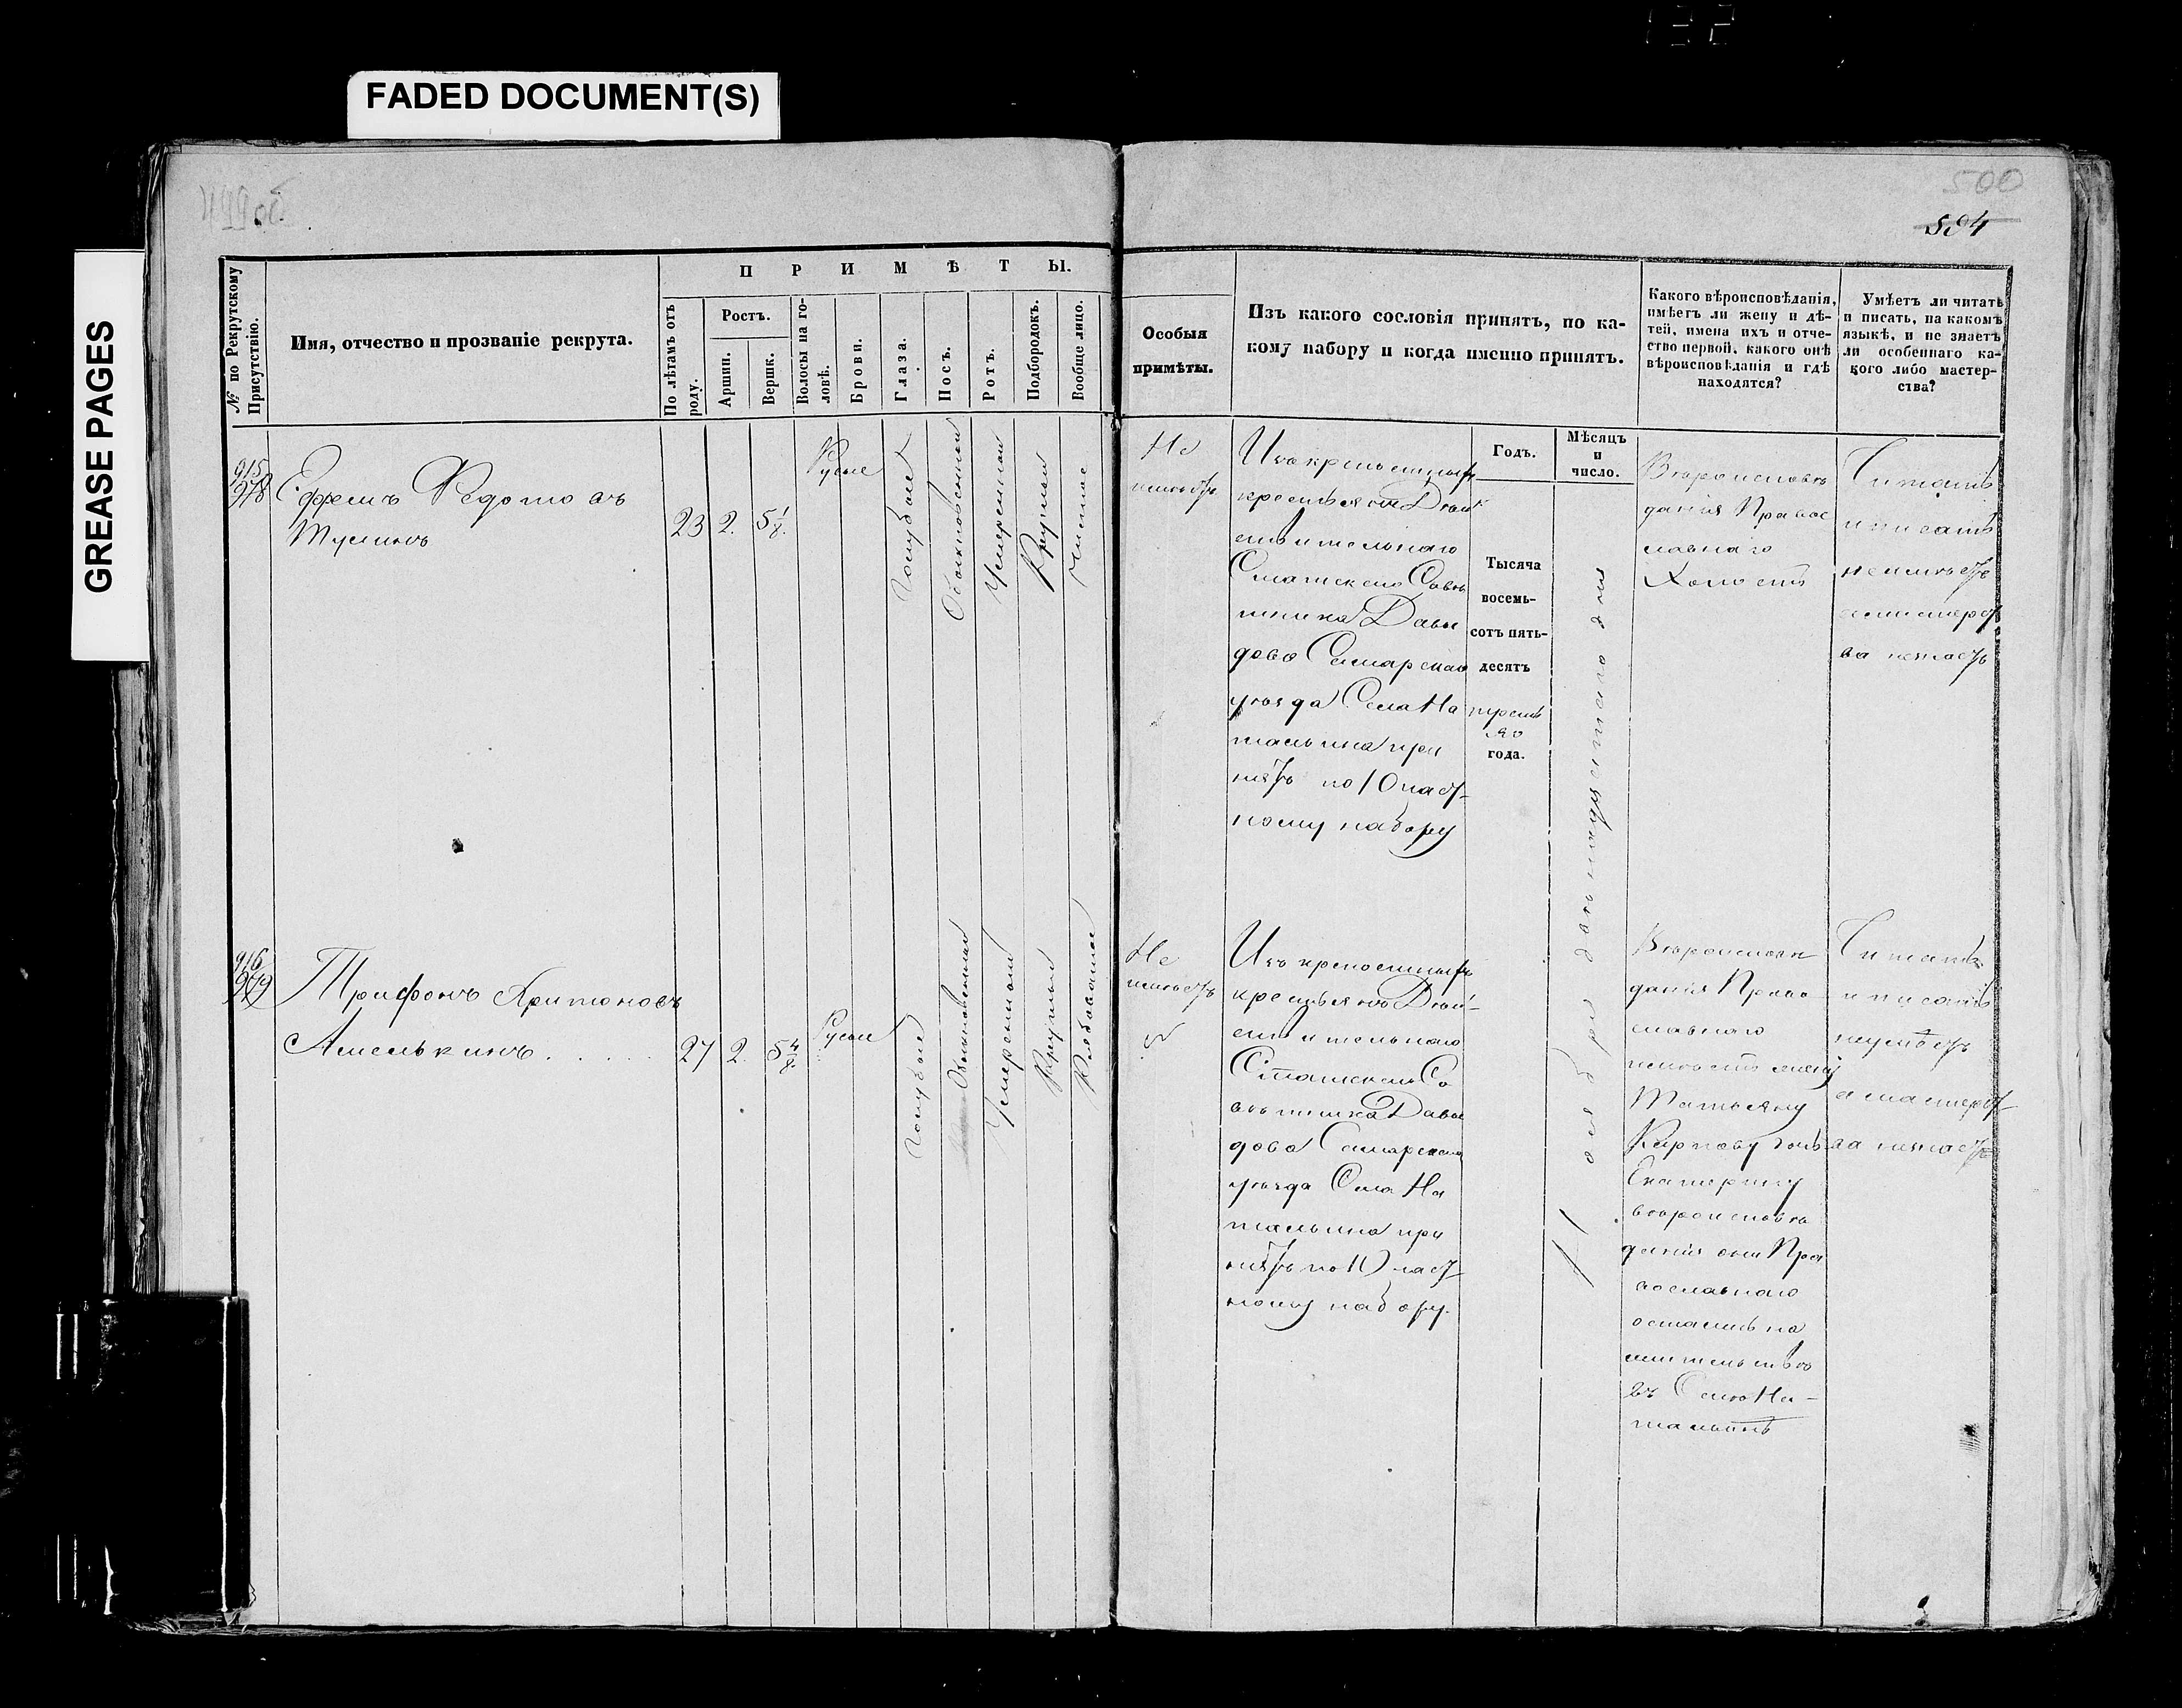 FADED DOCUMENT(S)
GREASE PAGES
499об.
500
594
№ по Рекрутскому
Присутствію.
Имя, отчество и прозваніе рекрута.
П Р И М Ѣ Т Ы.
По лѣтамъ отъ
роду.
Ростъ.
Аршин.
Вершк.
Волосы на го-
ловѣ.
Брови.
Глаза.
Носъ.
Ротъ.
Подбородокъ.
Вообще лицо.
Особыя
примѣты.
Изъ какого сословія принятъ, по ка-
кому набору и когда именно принятъ.
Какого вѣроисповѣданія,
имѣетъ ли жену и дѣ-
тей, имена ихъ и отче-
ство первой, какого онѣ
вѣроисповѣданія и гдѣ
находятся?
Умѣетъ ли читать
и писать, на какомъ
языкѣ, и не знаетъ
ли особеннаго ка-
кого либо мастер-
ства?
Годъ.
Мѣсяцъ
и
число.
915
978
Ефремъ Федотовъ
23
2.
5 1/8.
Русые
Голубые
Обыкновенный
Умеренный
Круглый
Чистое
Не
имѣетъ
Изъ крепостныхъ
крестьянъ Дѣй
ствительнаго
Статскаго Совѣ
тника Давы
дова Самарскаго
уѣзда Села На
тальина при
нятъ по 10 част-
ному набору
Тысяча
восемь-
сотъ пять-
десятъ
третьяго
года.
Вѣроисповѣ
данія Правос
лавнаго
Холостъ
Читать
и писать
не имѣетъ
а мастерст
ва незнаетъ
916
979
Трифонъ Аритоновъ
Амелькинъ
27
2.
5 4/8.
Русые
Голубые
Обыкновенный
Умеренный
Круглый
Рябоватое
Не
имѣетъ
Изъ крепостныхъ
крестьянъ Дѣй-
ствительнаго
Статскаго Со
вѣтника Давы
дова Самарскаго
уѣзда Села На
тальина при
нятъ по 10 част-
ному набору.
ября двадцатаго дня
Вѣроисповѣ
данія Право
славнаго
имѣетъ жену
Татьяну
Карпову дочь
Екатерину
вѣроисповѣ
данія они Пра
вославнаго
остались на
жительствѣ
въ Селѣ На-
тальинѣ
Читать
и писать
неумѣетъ
а мастерст
ва незнаетъ